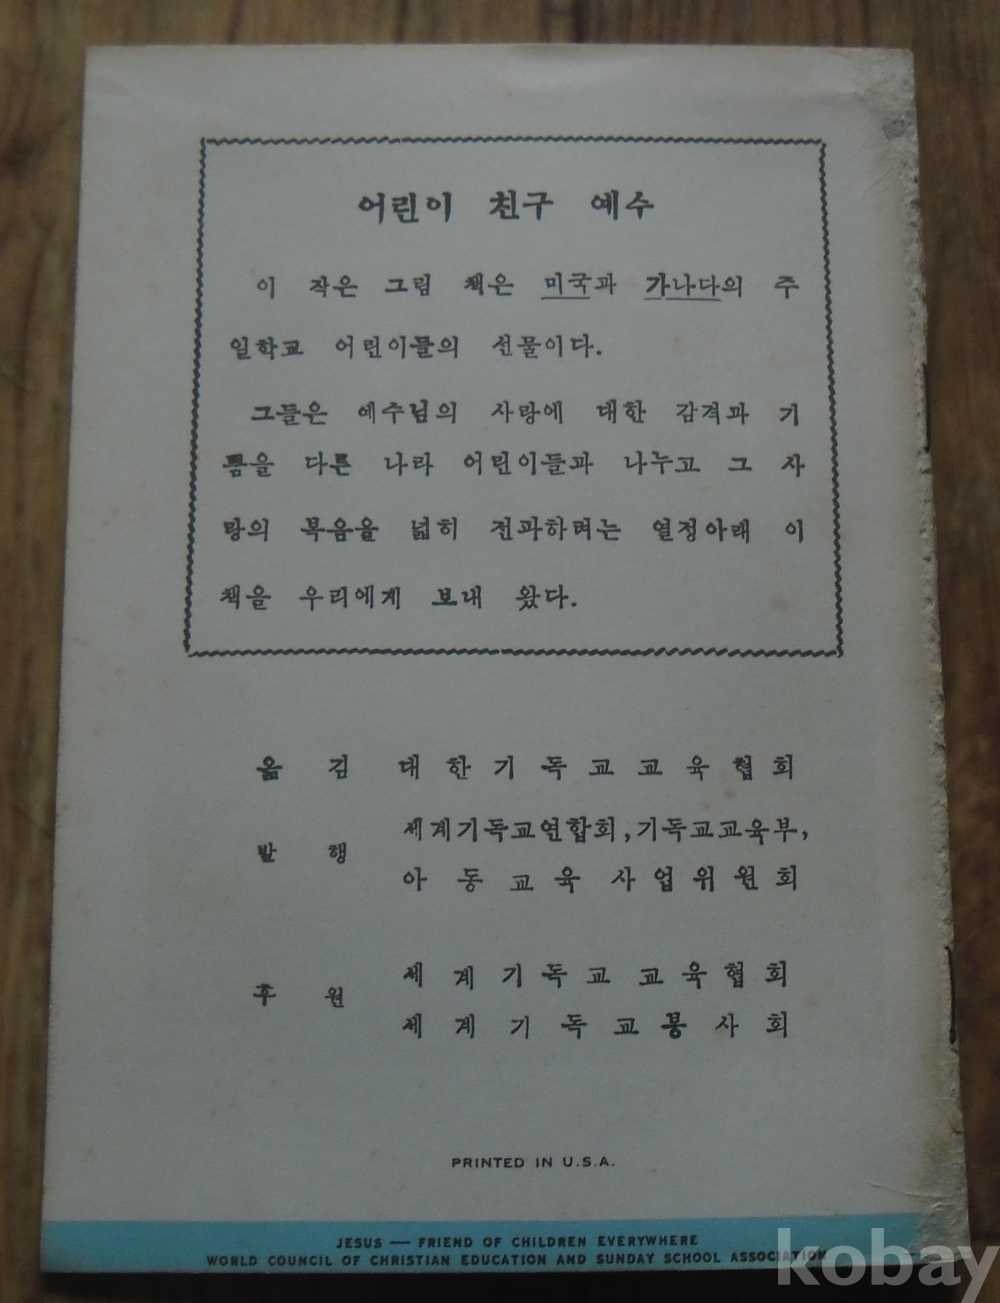 어린이 친구 예수
이 작은 그림 책은 미국과 가나다의 주
일학교 어린이들의 선물이다.
그들은 예수님의 사랑에 대한 감격과 기
쁨을 다른 나라 어린이들과 나누고 그 사
랑의 복음을 넓히 전파하려는 열정아래 이
책을 우리에게 보내 왔다.
옮김 대한기독교교육협회
발행 세계기독교연합회, 기독교교육부,
아동교육 사업위원회
후원 세계기독교교육협회
세계기독교봉사회
PRINTED IN U.S.A.
JESUS — FRIEND OF CHILDREN EVERYWHERE
WORLD COUNCIL OF CHRISTIAN EDUCATION AND SUNDAY SCHOOL ASSOCIATION
kobay